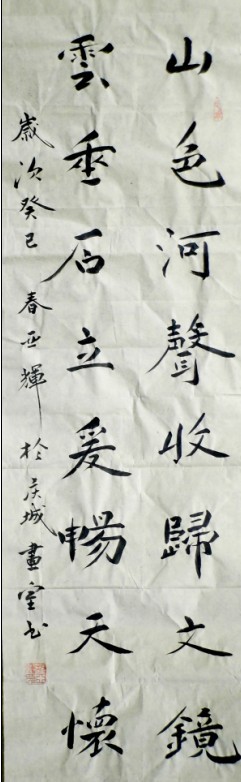 山色河聲收歸文鏡
雲垂石立爰暢天懷
歲次癸巳 春亞輝 於侯城畫室書